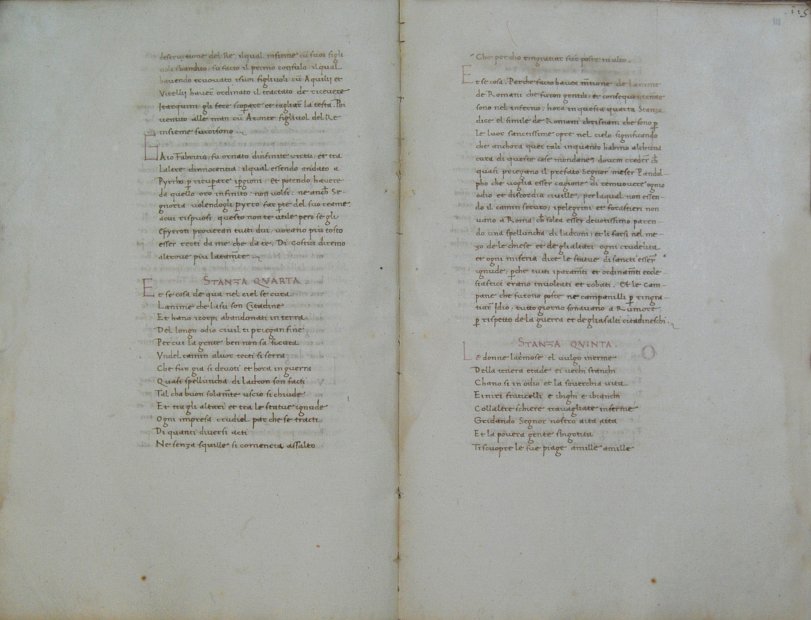 destructione del Re, ilqual insieme cū suoi figli
uole sbandito, fu facto il primo consulo. ilqual
havendo trovato isuoi figliuoli cū Aquilii et
Vitellii haver ordinato il tractato de ricevere
Itarquini, gli fece scopare et tagliar la testa. Poi
venuto alle man cū Aronte figliuol del Re
insieme sucisono.
EAio Fabritio, fu ornato dinfinite virtu, et tra
Laltre dinnocentia, ilqual essendo mādato a
Pyrrho p̄ ricuperare ipgioni, et potendo havere
da quello oro infinito, non volse, ne anch̄ Se
gnoria volendogli pyrro far pte del suo reame
acui rispuosi, questo non te utile pero se gli
Epyroti proveran tutti dui, vorano piu tosto
esser recti da me che da te. Di costui diremo
altrove piu latamēte
STANZA QVARTA.
Et se cosa de qua nel ciel se cura
Lanime che lasu son Citadine
Et hano icorpi abandonati in terra
Del longo odio civil ti priegan fine
Per cui la gente ben non sa sicura
Vndel camin aluor tecti si serra
Che fur gia si devoti et hora in guerra
Quasi spelluncha di ladron son facti
Tal cha buon solamēte uscio si chiude
Et tra gli altari et tra le statue ignude
Ogni impresa crudiel par che se tracti
Di quanti diversi acti
Ne senza squille si comencia assalto
115
Che per dio ringratiar fur poste in alto.
Et se cosa. Perche facto haver mētione de lanime
de Romani che furon gentili, et consequentemēte
sono nel inferno, hora in questa quarta Stanza
dice il simile de Romani christiani che sono p̄
le luor sanctissime opre nel cielo significando
che anchora quei tali inquanto habino alchuna
cura di queste cose mundane, dovem creder ch̄
quasi priegano il prefato Segnor meser Pandol
pho che voglia esser cagione di removuere ogni
odio et discordia civille, per laqual non essen
do il camin securo, i pelegrini et forastieri non
vano a Roma cō solea esser devotissimo paren
do una spelluncha di ladroni, et li farsi nel me
zo de le chiese et de gli altari ogni crudelita
et ogni miseria dice le statue di sancti esser
ignude, p̄che tuti iparamēti et ordinamēti eccle
siastici erano involati et robati. Et le cam
pane che furono poste ne campanilli p̄ ringra
tiar Idio, tutto giorno sonavano a Rumore
p̄ rispetto de la guerra et de gli asalti citadineschi.
STANZA QVINTA.
Le donne lacrimose el vulgo inerme
Della tenera etade et vechi stanchi
Chano si in odio et la soverchia vita
Ei neri fraticelli e ibighi e ibianchi
Collaltre schiere travagliate inferme
Gridando Segnor nostro aita aita
Et la povera gente sbigotita
Ti scuopre le sue piage amille amille